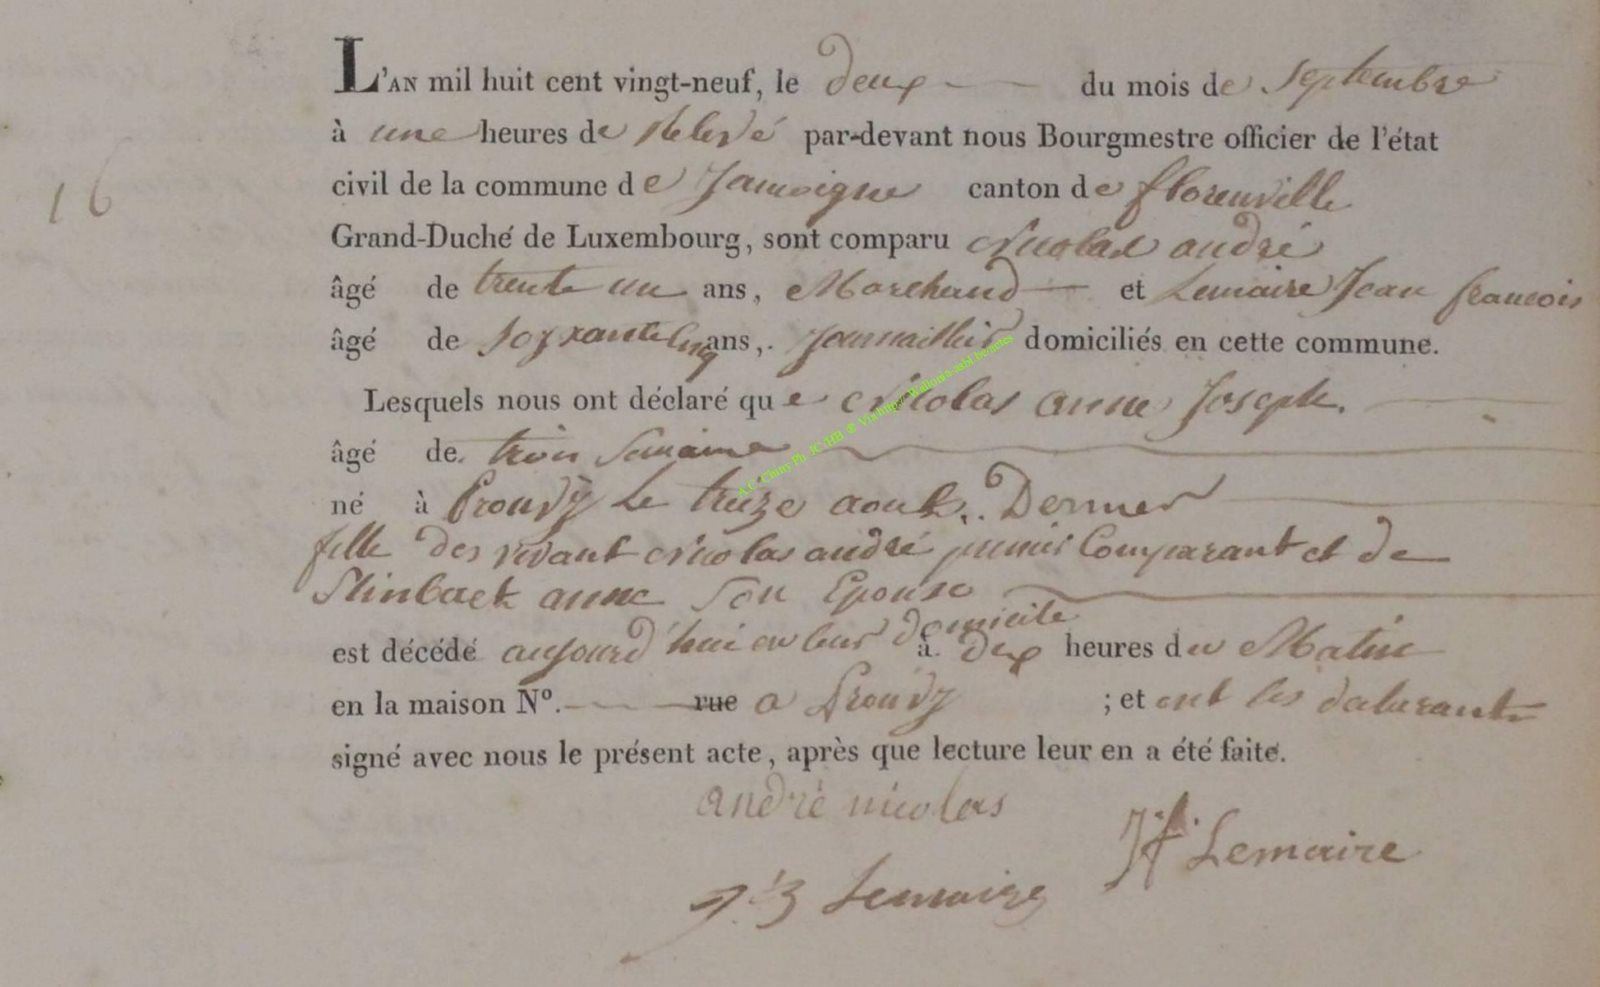 L'AN mil huit cent vingt-neuf, le deux du mois de Septembre
à une heures de Relevé par-devant nous Bourgmestre officier de l'état
16
civil de la commune de Jamoigne canton de florenville
Grand-Duché de Luxembourg, sont comparu Nicolas andré
âgé de trente un ans, Marchand et Lemaire Jean francois
âgé de Soyxante Cinq ans, Journaillier domiciliés en cette commune.
Lesquels nous ont déclaré que Nicolas anne Joseph.
âgé de trois Semaine
né à Prouvy Le treize aout.. Dernier
fille des vivant Nicolas andré premier Comparant et de
Stinback anne Son Epouse
est décédé aujourd'hui en leur domicile à deux heures du Matin
en la maison N°. rue a Prouvy ; et ont les
signé avec nous le présent acte, après que lecture leur en a été faite.
andré nicolas
Jf Lemaire
Lemaire
A.C. Chiny Ph. JC. HB & Visibility Wallonia-asbl.benotes